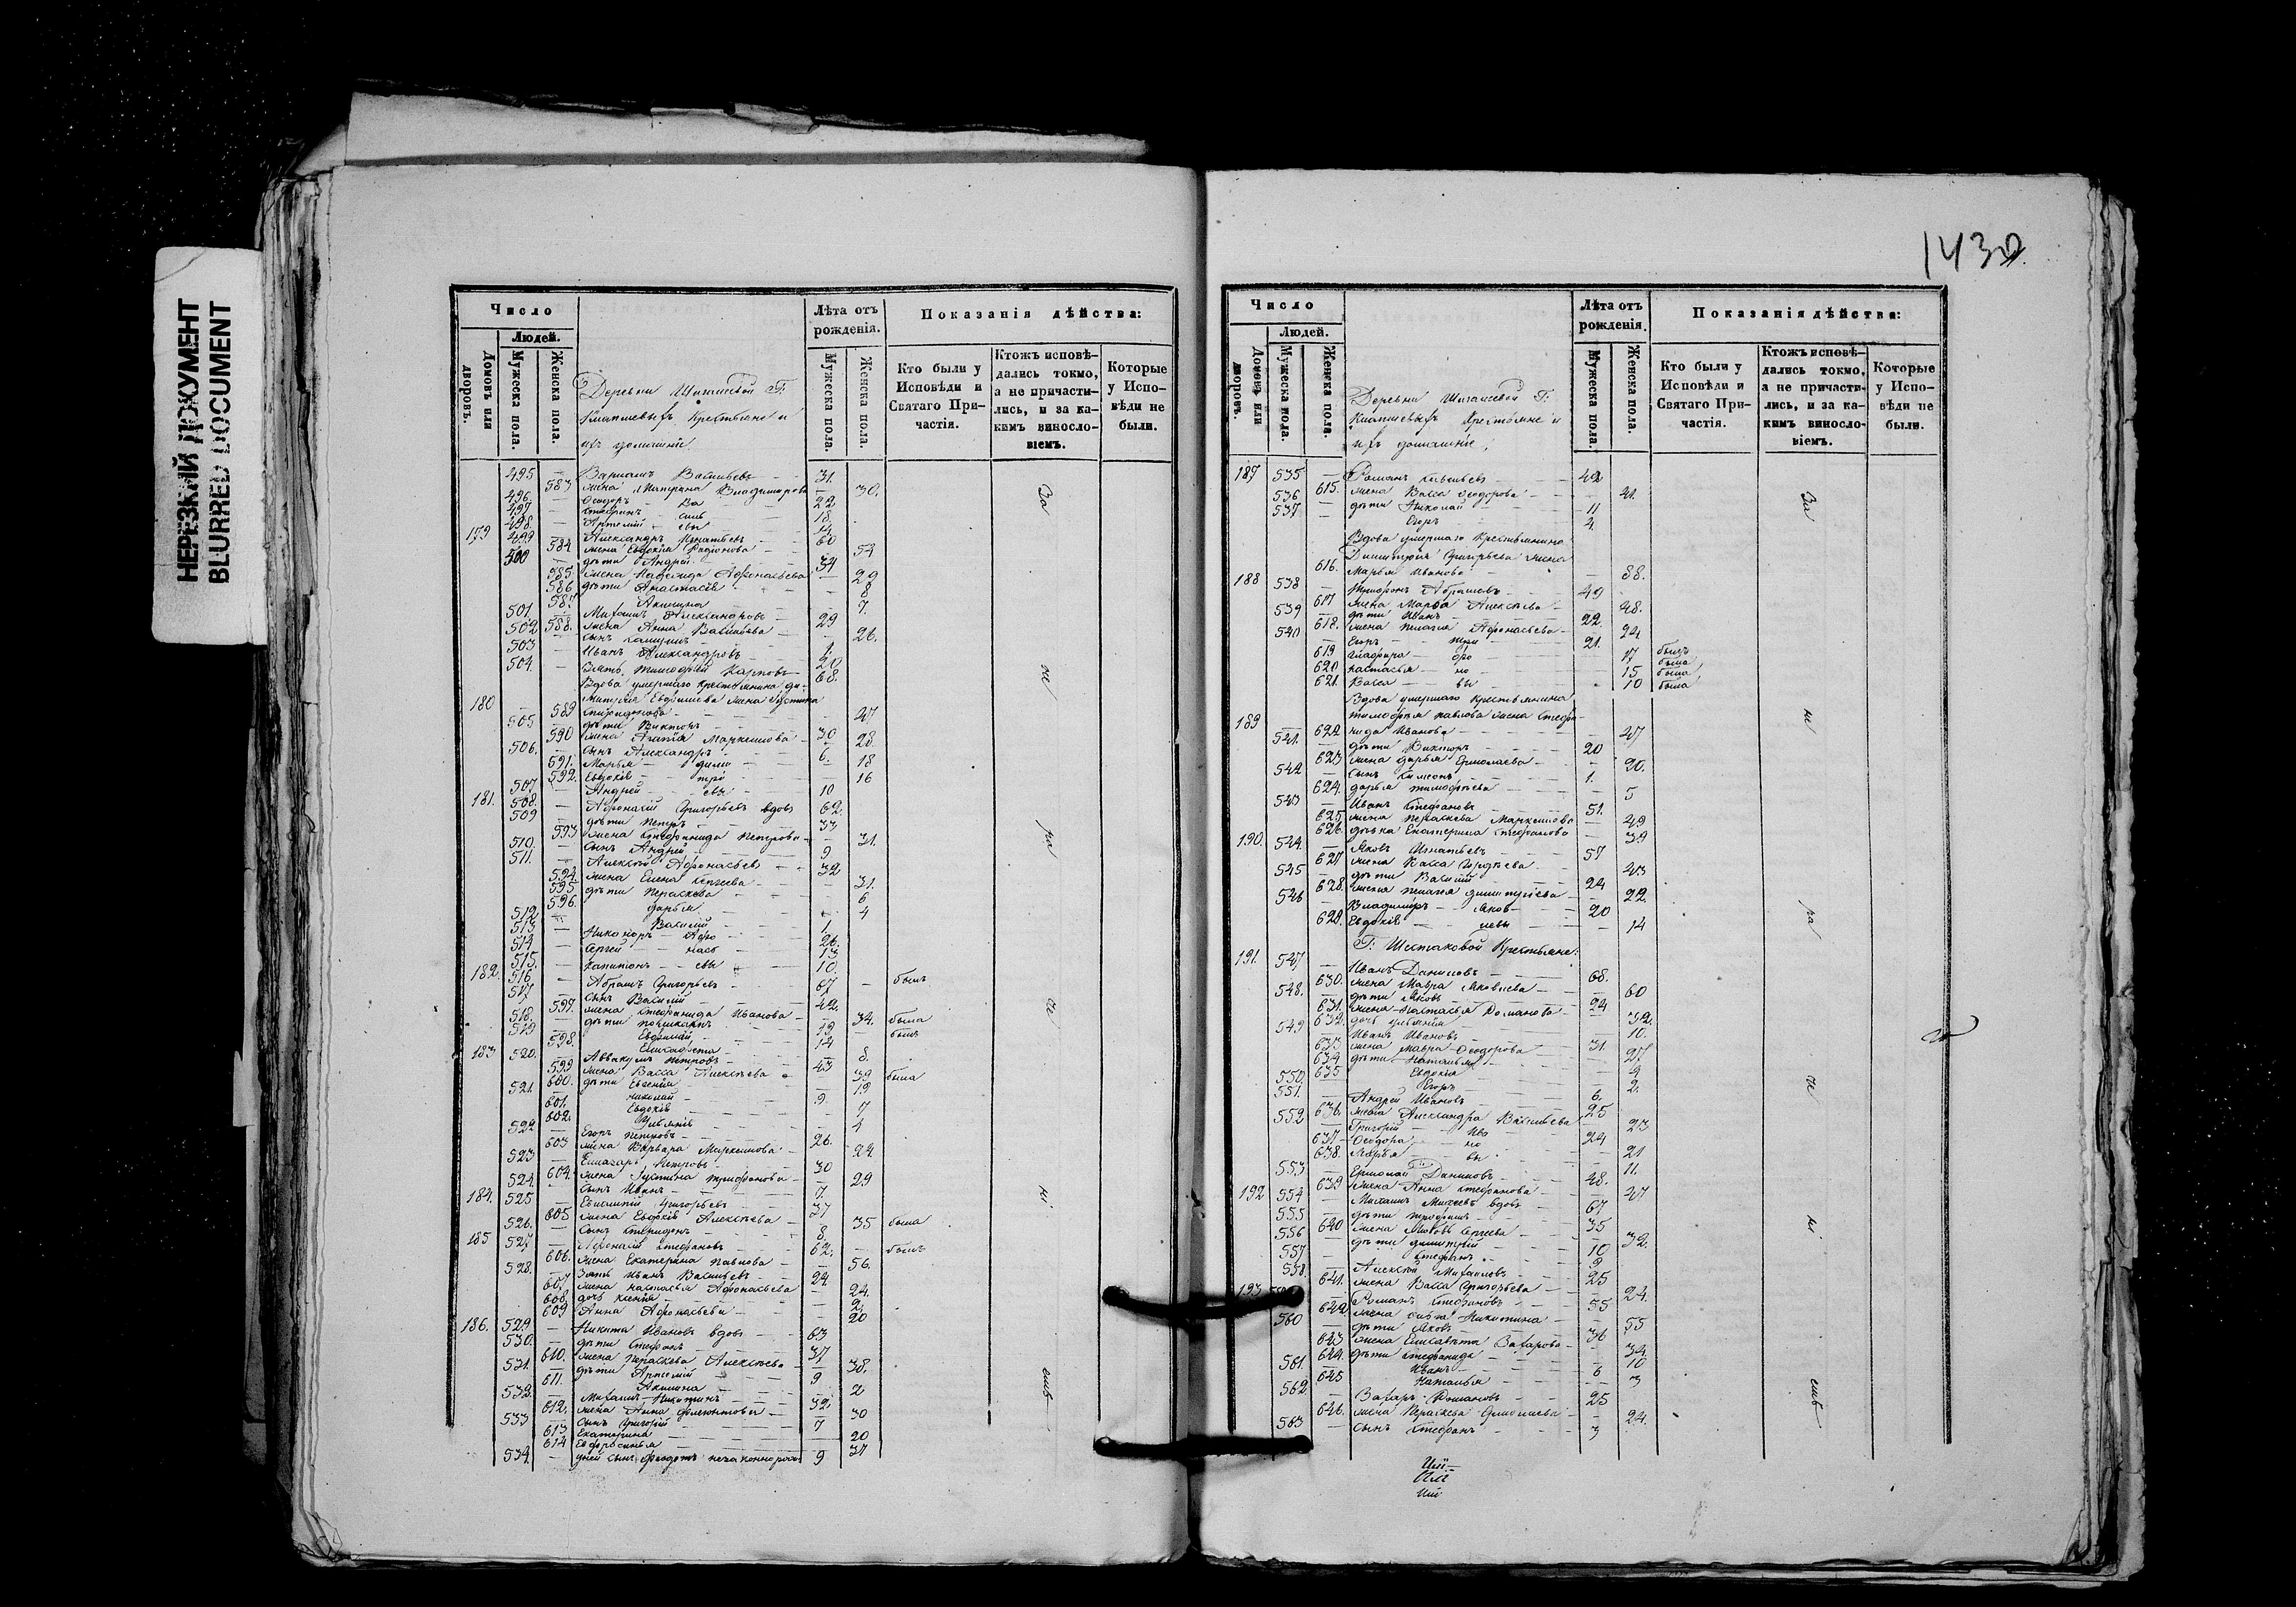 НЕРЕЗКИЙ ДОКУМЕНТ
BLURRED DOCUMENT
1430.
Число
Людей.
Домовъ или дворовъ.
Мужеска пола.
Женска пола.
Лѣта отъ рожденія.
Мужеска пола.
Женска пола.
Показанія дѣйства:
Кто были у Исповѣди и Святаго Причастія.
Ктожъ исповѣдались токмо, а не причастились, и за какимъ винословіемъ.
Которые у Исповѣди не были.
Деревни Г:
Крестьяне и
ихъ домашніе.
495 — Варлаамъ Васильевъ 31.
583 жена Матрона Владимирова 30.
496. Ѳеодоръ — Ва 22
497 Стефанъ — силь 18.
498. Артемій — евы 14
179 499 Александръ Игнатьевъ 60
584 жена Евдокія Родіонова 54
500 дѣти Андрей 34
585 жена Надежда Афонасьева 29
586 дѣти Анастасія 8
587. Акилина 7.
501. Михаилъ Александровъ 29
588. жена Анна Васильева 26.
502 сынъ 1.
503 Иванъ Александровъ 20
504 зять Тимофей Карповъ 68.
Вдова умершаго крестьянина Ди-
митрія жена Іустина
180 589 Спиридонова 47
505 дѣти Викторъ 30
590 жена Агапія Маркелова 28.
506. сынъ Александръ 6.
591. Марья — дими 18
592. Евдокія — трі 16
507 Андрей — евы 10
181. 508. Афонасій Григорьевъ вдовъ 62.
509 дѣти Петръ 33
593 жена Стефанида Петрова 31.
510. сынъ Андрей 9
511. Алексѣй Афонасьевъ 32
594. жена Елена Сергеева 31.
595 дѣти Параскева 6
596. Дарья 4
512 Василій 1
513 Никаноръ — Афо 26.
514 Сергей — нась 13
515. Капитонъ — евы 10.
182. 516 Абрамъ Григорьевъ 67 былъ
517 сынъ Василій 42.
597. жена Стефанида Иванова 34. была
518. дѣти 19 былъ
519 Евфимій 14
598. Елисавета 8.
183 520. Аввакумъ Петровъ 43
599 жена Васса Алексѣева 39 была
600. дѣти Евгенія 19
521. Николай 9.
601. Евдокія 7
602. Ульянія 4
522 Егоръ Петровъ 26.
603 жена Варвара Маркелова 24
523 Елиазаръ Петровъ 30
604. жена Іустина Трифонова 29
524. сынъ Иванъ 7.
184. 525 Евлампій Григорьевъ 37
605 жена Евдокія Алексѣева 35 была
526. сынъ Спиридонъ 8.
185 527. Афонасій Стефановъ 62. былъ
606. жена Екатерина Павлова 56.
528. зять Иванъ Васильевъ 24
607 жена Настасья Афонасьева 24.
608. дочь Ксенія 2.
609 Анна Афонасьева 20
186. 529 Никита Ивановъ вдовъ 63
530. дѣти Стефанъ 37
610. жена Параскева Алексѣева 38.
531. дѣти Артемій 9
611. Акилина 2
532. Михаилъ Никитинъ 32.
612. жена Анна 30
533 сынъ Григорій 7
613 Екатерина 20
614 Евфросинья 37
534. у ней сынъ Ѳеодотъ незаконнорож: 9
За не ра че ні емъ
Число
Людей.
Домовъ или дворовъ.
Мужеска пола.
Женска пола.
Лѣта отъ рожденія.
Мужеска пола.
Женска пола.
Показанія дѣйства:
Кто были у Исповѣди и Святаго Причастія.
Ктожъ исповѣдались токмо, а не причастились, и за какимъ винословіемъ.
Которые у Исповѣди не были.
Деревни Г:
Крестьяне и
ихъ домашніе;
187 535 Романъ 42
615. жена Васса Ѳеодорова 41.
536 дѣти Николай 11
537 Егоръ 4.
Вдова умершаго крестьянина
Димитрія Григорьева жена
616. Марья Иванова 88.
188 538 Трифонъ Абрамовъ 49
617 жена Марѳа Алексѣева 48.
539 дѣти Иванъ 22.
618. жена Пелагея Афонасьева 24
540 Егоръ — Три 21.
619 Глафира — фо 17 была
620 Настасья — но 15 была
621. Васса — вы 10 была
Вдова умершаго крестьянина
Тимофея Павлова жена Стефа-
189 622 нида Иванова 47
541. дѣти Викторъ 20
623 жена Дарья Ермолаева 20.
542 сынъ Симеонъ 1.
624. Дарья Тимофѣева 5
543 Иванъ Стефановъ 51.
625 жена Параскева Маркелова 49
626. дѣвка Екатерина Стефанова 39
190. 544. Яковъ Игнатьевъ 57
627 жена Васса 43
545 дѣти Василій 24
628. жена Пелагея Димитріева 22
546 Владимиръ — Яков 20
629. Евдокія — левы 14
Г: Шестаковой Крестьяне:
191. 547 Иванъ Даниловъ 68.
630. жена Мавра Яковлева 60
548. дѣти Яковъ 24
631. жена Настасья Романова 32.
632. дочь Ульянія 10.
549 Иванъ Ивановъ 31.
633 жена Мавра Ѳеодорова 27
634 дѣти Наталья 4
635 Евдокія 2.
550. Егоръ 6.
551. Андрей Ивановъ 25
636. жена Александра Васильева 23
552 Григорій — Ива 24
637 Ѳеодора — но 21
638. Марья — вы 11.
553 Ермолай Даниловъ 48.
639 жена Анна Стефанова 47
192 554 Михаилъ Михеевъ вдовъ 67
555 дѣти Трофимъ 35
640 жена Любовь Сергеева 32.
556 дѣти Димитрій 10
557 Стефанъ 9
558. Алексѣй Михайловъ 25
641. жена Васса Григорьева 24.
193 Романъ Стефановъ 55
642 жена Никитина 55
560 дѣти Яковъ 36
643 жена Елисавета Захарова 34.
644. дѣти Стефанида 10
561. Иванъ 6
645 Наталья 3
562. Захаръ Романовъ 25
646. жена Параскева Ермолаева 24.
563 сынъ Стефанъ 3
За не ра че ні емъ